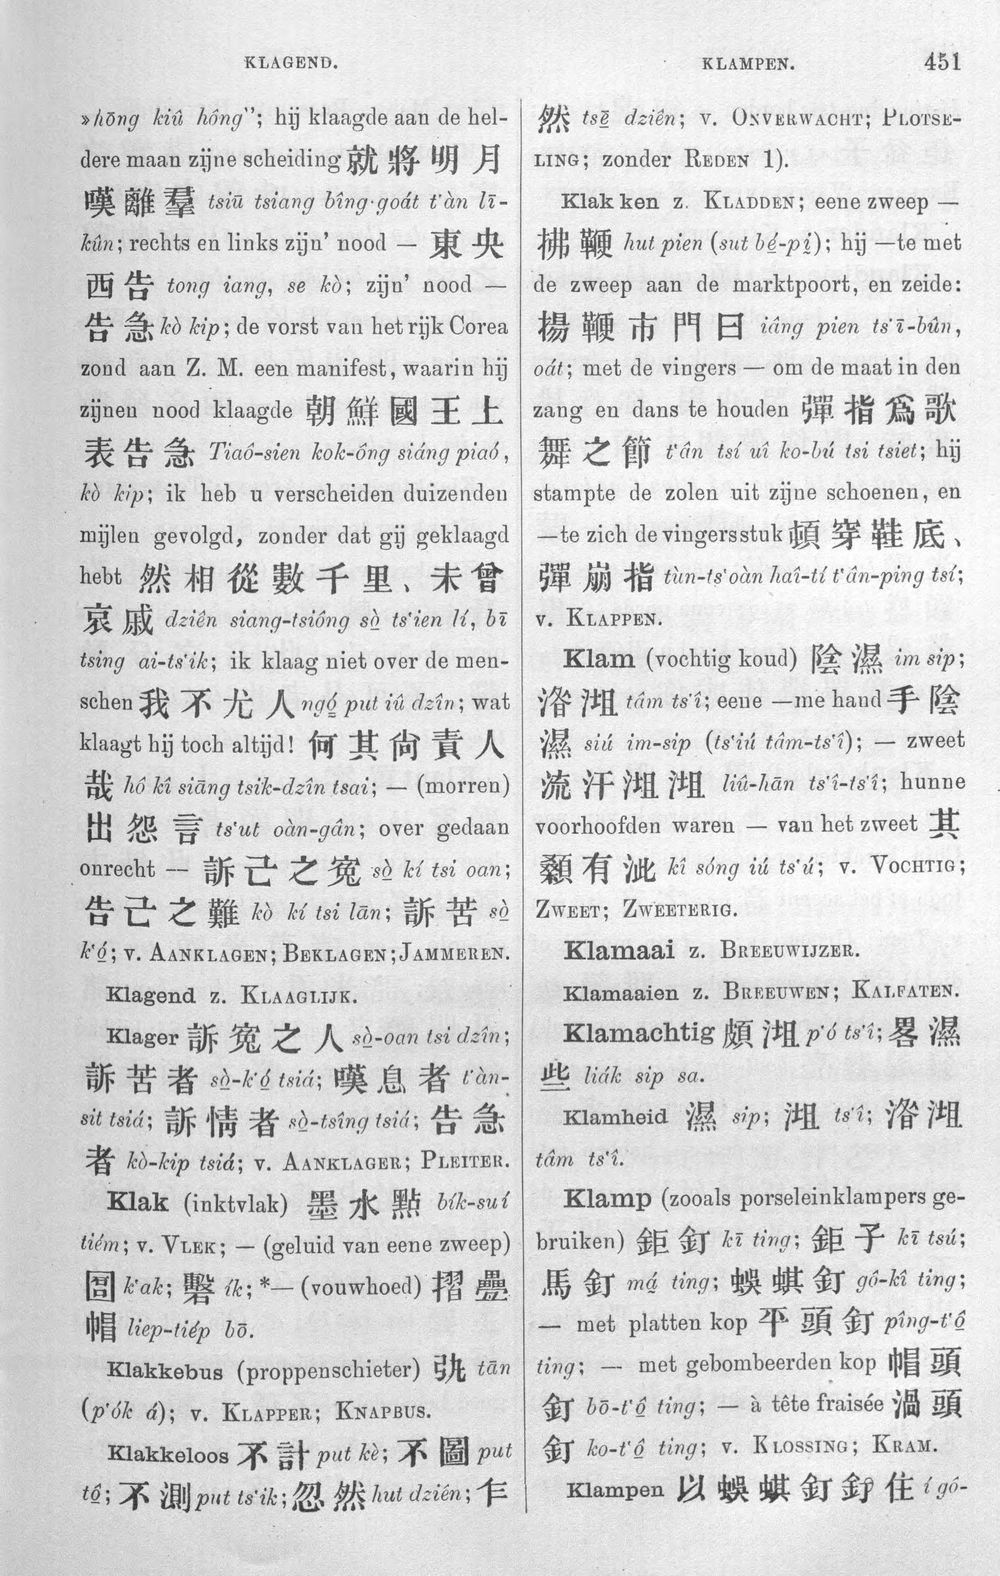 KLAGEND.
KLAMPEN.
451
»hōng kiû hông"; hij klaagde aan de hel-
dere maan zijne scheiding 就 將 明 月
嘆 離 羣 tsiū tsiang bîng-goát t'àn lī-
kûn; rechts en links zijn' nood — 東 央
西 告 tong iang, se kò; zijn' nood —
告 急 kò kip; de vorst van het rijk Corea
zond aan Z. M. een manifest, waarin hij
zijnen nood klaagde 朝 鮮 國 王 上
表 告 急 Tiaô-sien kok-ông siáng piaó,
kò kip; ik heb u verscheiden duizenden
mijlen gevolgd, zonder dat gij geklaagd
hebt 然 相 從 數 千 里、未 曾
哀 戚 dziên siang-tsiông sò̤ ts'ien lí, bī
tsing ai-ts'ik; ik klaag niet over de men-
schen 我 不 尤 人 ngó̤ put iû dzîn; wat
klaagt hij toch altijd! 何 其 尙 責 人
哉 hô kî siāng tsik-dzîn tsai; — (morren)
出 怨 言 ts'ut oàn-gân; over gedaan
onrecht — 訴 己 之 寃 sò̤ kí tsi oan;
告 己 之 難 kò kí tsi lān; 訴 苦 sò̤
k'ó̤; v. AANKLAGEN; BEKLAGEN; JAMMEREN.
Klagend z. KLAAGLIJK.
Klager 訴 寃 之 人 sò̤-oan tsi dzîn;
訴 苦 者 sò̤-k'ó̤ tsiá; 嘆 息 者 t'àn-
sit tsiá; 訴 情 者 sò̤-tsîng tsiá; 告 急
者 kò-kip tsiá; v. AANKLAGER; PLEITER.
Klak (inktvlak) 墨 水 點 bík-suí
tiém; v. VLEK; — (geluid van eene zweep)
k'ak; ík; *— (vouwhoed) 摺 疊
帽 liep-tiép bō.
Klakkebus (proppenschieter) tān
(p'ók á); v. KLAPPER; KNAPBUS.
Klakkeloos 不 計 put kè; 不 圖 put
tô̤; 不 測 put ts'ik; 忽 然 hut dziên; 乍
然 tsē̤ dziên; v. ONVERWACHT; PLOTSE-
LING; zonder REDEN 1).
Klakken z. KLADDEN; eene zweep —
拂 鞭 hut pien (sut bé̤-pi̤); hij —te met
de zweep aan de marktpoort, en zeide:
揚 鞭 市 門 曰 iâng pien ts'ī-bûn,
oát; met de vingers — om de maat in den
zang en dans te houden 彈 指 爲 歌
舞 之 節 t'ân tsí uî ko-bú tsi tsiet; hij
stampte de zolen uit zijne schoenen, en
—te zich de vingers stuk 頓 穿 鞋 底、
彈 崩 指 tùn-ts'oàn haî-tí t'ân-ping tsí;
v. KLAPPEN.
Klam (vochtig koud) 陰 濕 im sip;
tâm ts'î; eene —me hand 手 陰
濕 siú im-sip (ts'iú tâm-ts'î); — zweet
流 汗 liû-hān ts'î-ts'î; hunne
voorhoofden waren — van het zweet 其
顙 有 泚 kî sóng iú ts'ú; v. VOCHTIG;
ZWEET; ZWEETERIG.
Klamaai z. BREEUWIJZER.
Klamaaien z. BREEUWEN; KALFATEN.
Klamachtig 頗 p'ó ts'î; 畧 濕
些 liák sip sa.
Klamheid 濕 sip; ts'î;
tâm ts'î.
Klamp (zooals porseleinklampers ge-
bruiken) 鉅 釘 kī ting; 鉅 子 kī tsú;
馬 釘 má̤ ting; 蜈 蜞 釘 gô-kî ting;
— met platten kop 平 頭 釘 pîng-t'ô̤
ting; — met gebombeerden kop 帽 頭
釘 bō-t'ô̤ ting; — à tête fraisée 渦 頭
釘 ko-t'ô̤ ting; v. KLOSSING; KRAM.
Klampen 以 蜈 蜞 釘 釕 住 í gô-